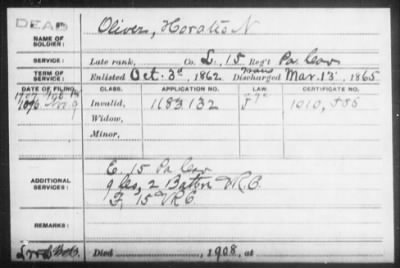 DEAD
Oliver, Horatio N
NAME OF SOLDIER:
SERVICE: Late rank, Co. L, 15 Reg't Pa Cav
TERM OF SERVICE: Enlisted Oct. 3d, 1862 Trans Discharged Mar. 13, 1865
DATE OF FILING. CLASS. APPLICATION NO. LAW. CERTIFICATE NO.
Invalid, 1183132
Widow,
Minor,
ADDITIONAL SERVICES:
E, 15 Pa Cav
2 Batt'n V.R.C.
F, 15 V.R.C
REMARKS:
Died , 1908, at